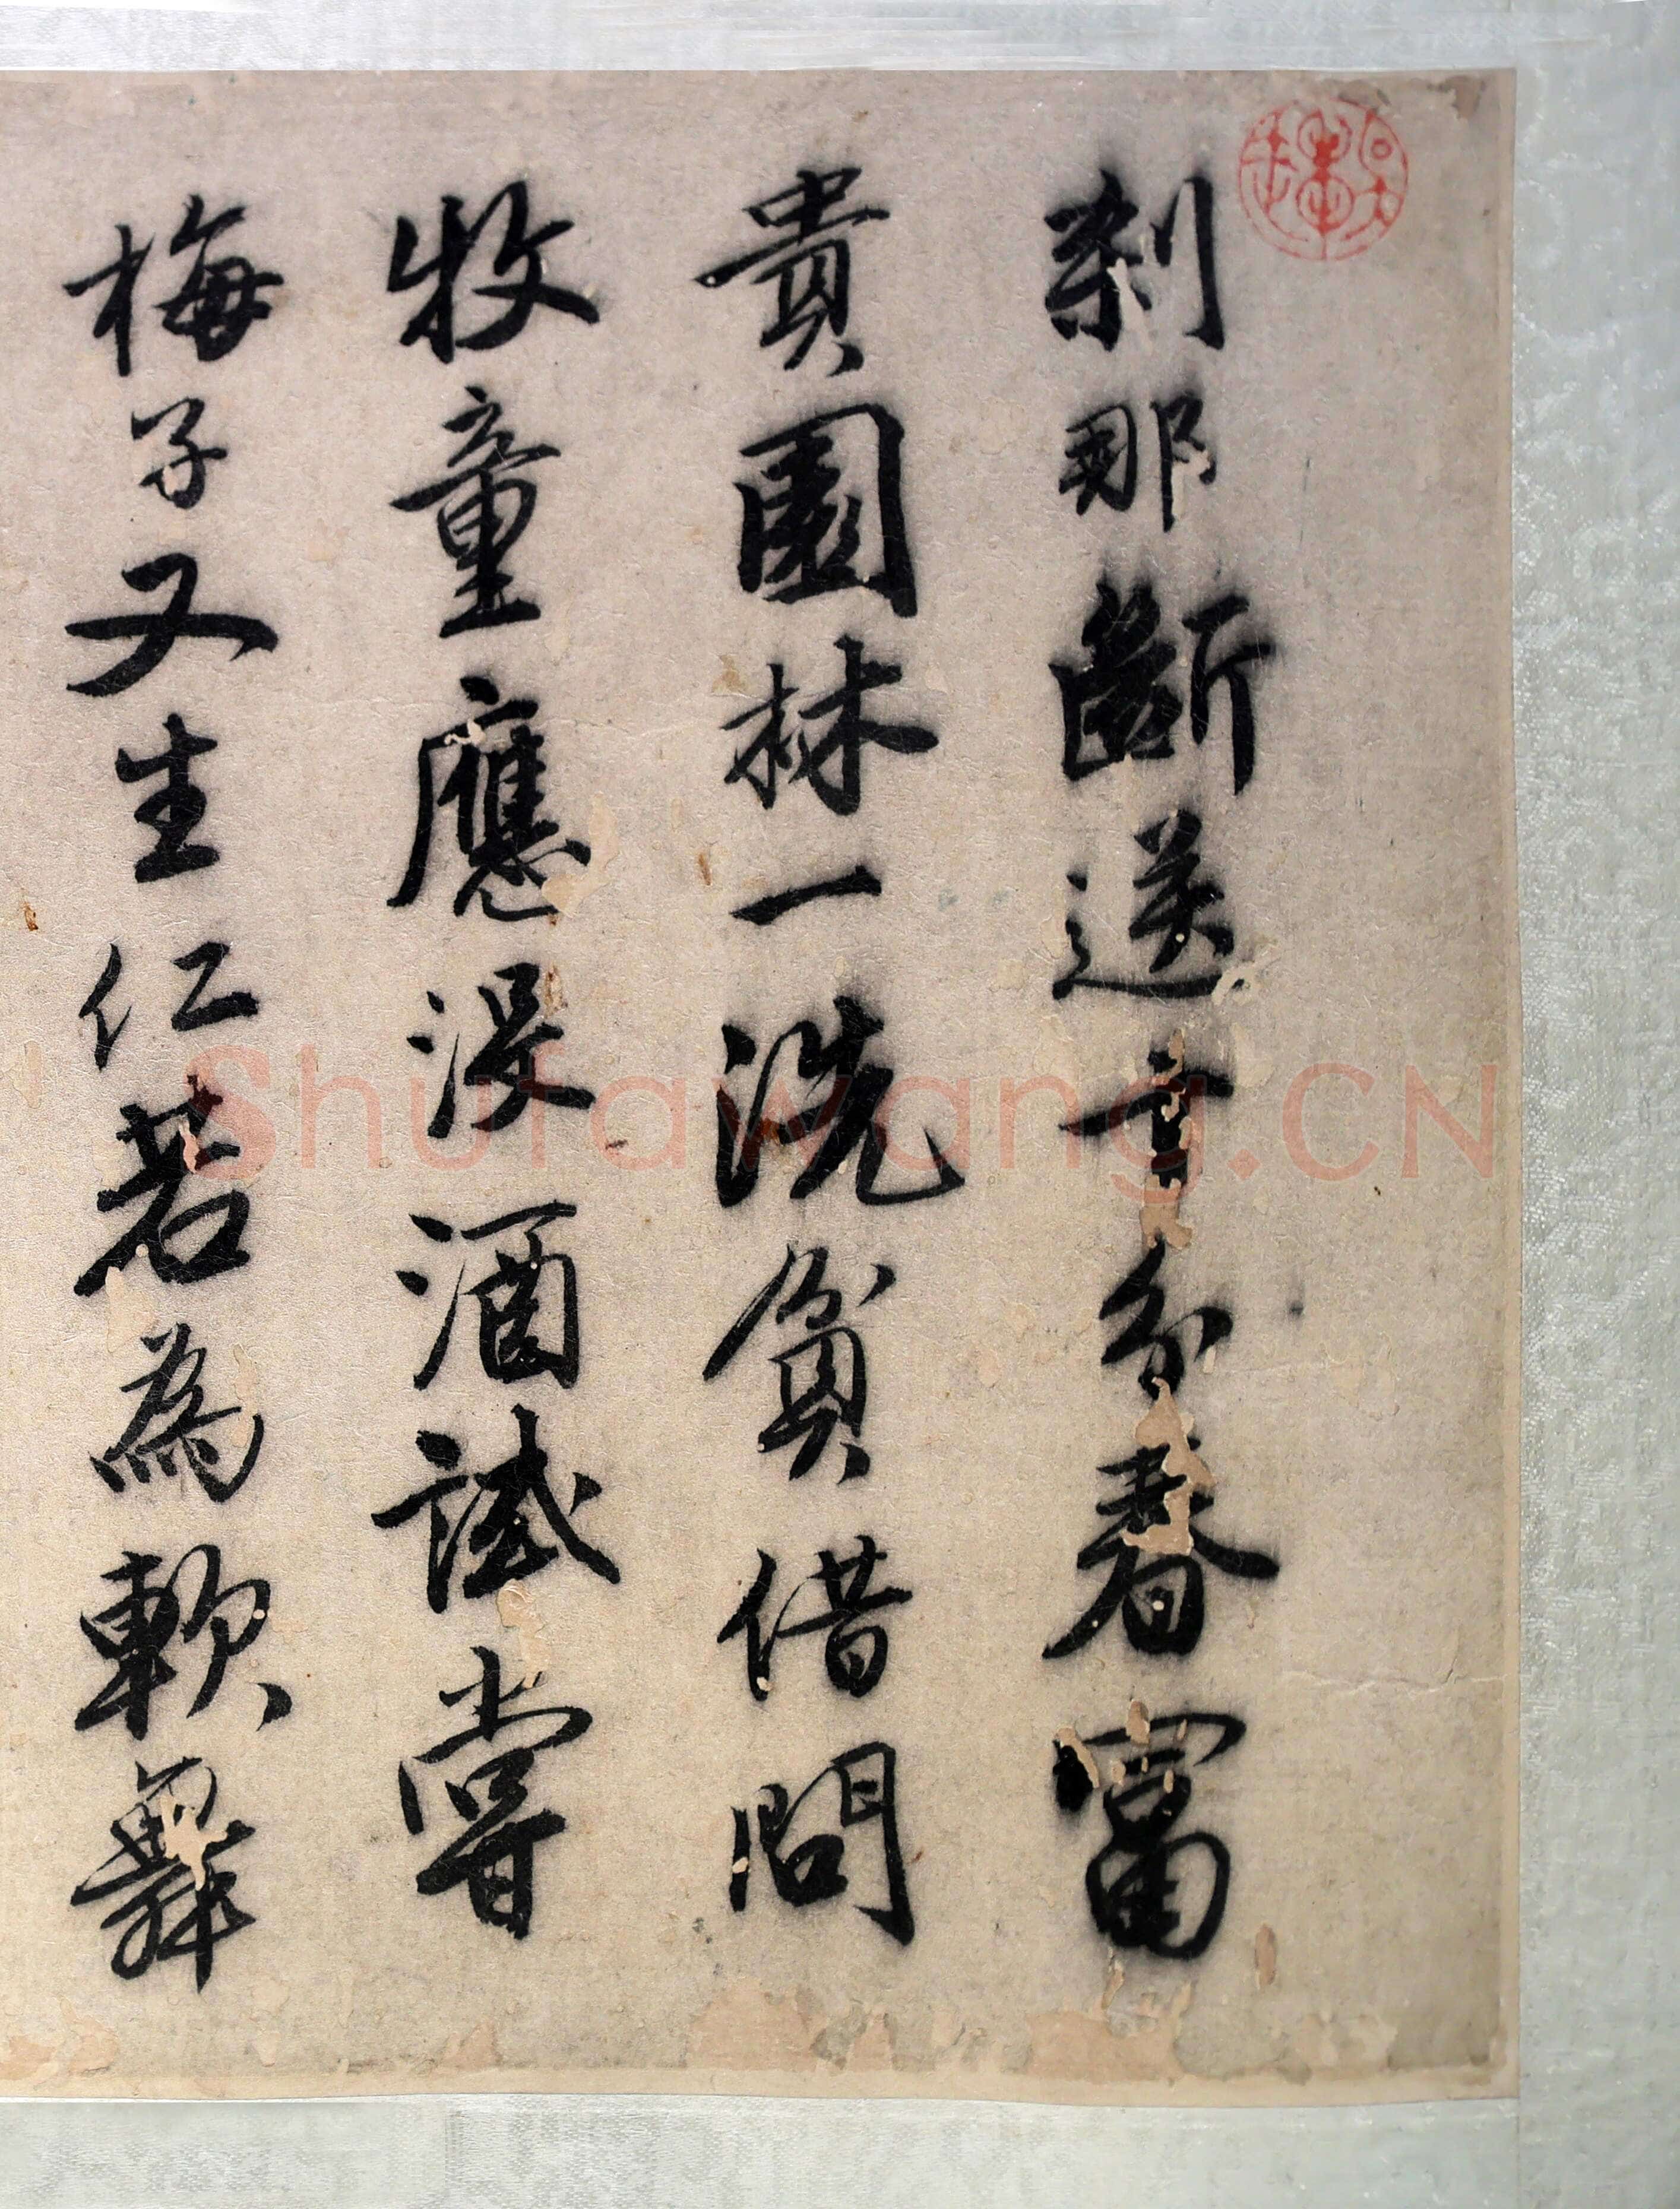 刹那斷送十分春富
貴園林一洗貧借問
牧童應沒酒試嘗
梅子又生仁若為軟舞
Shufawang.CN